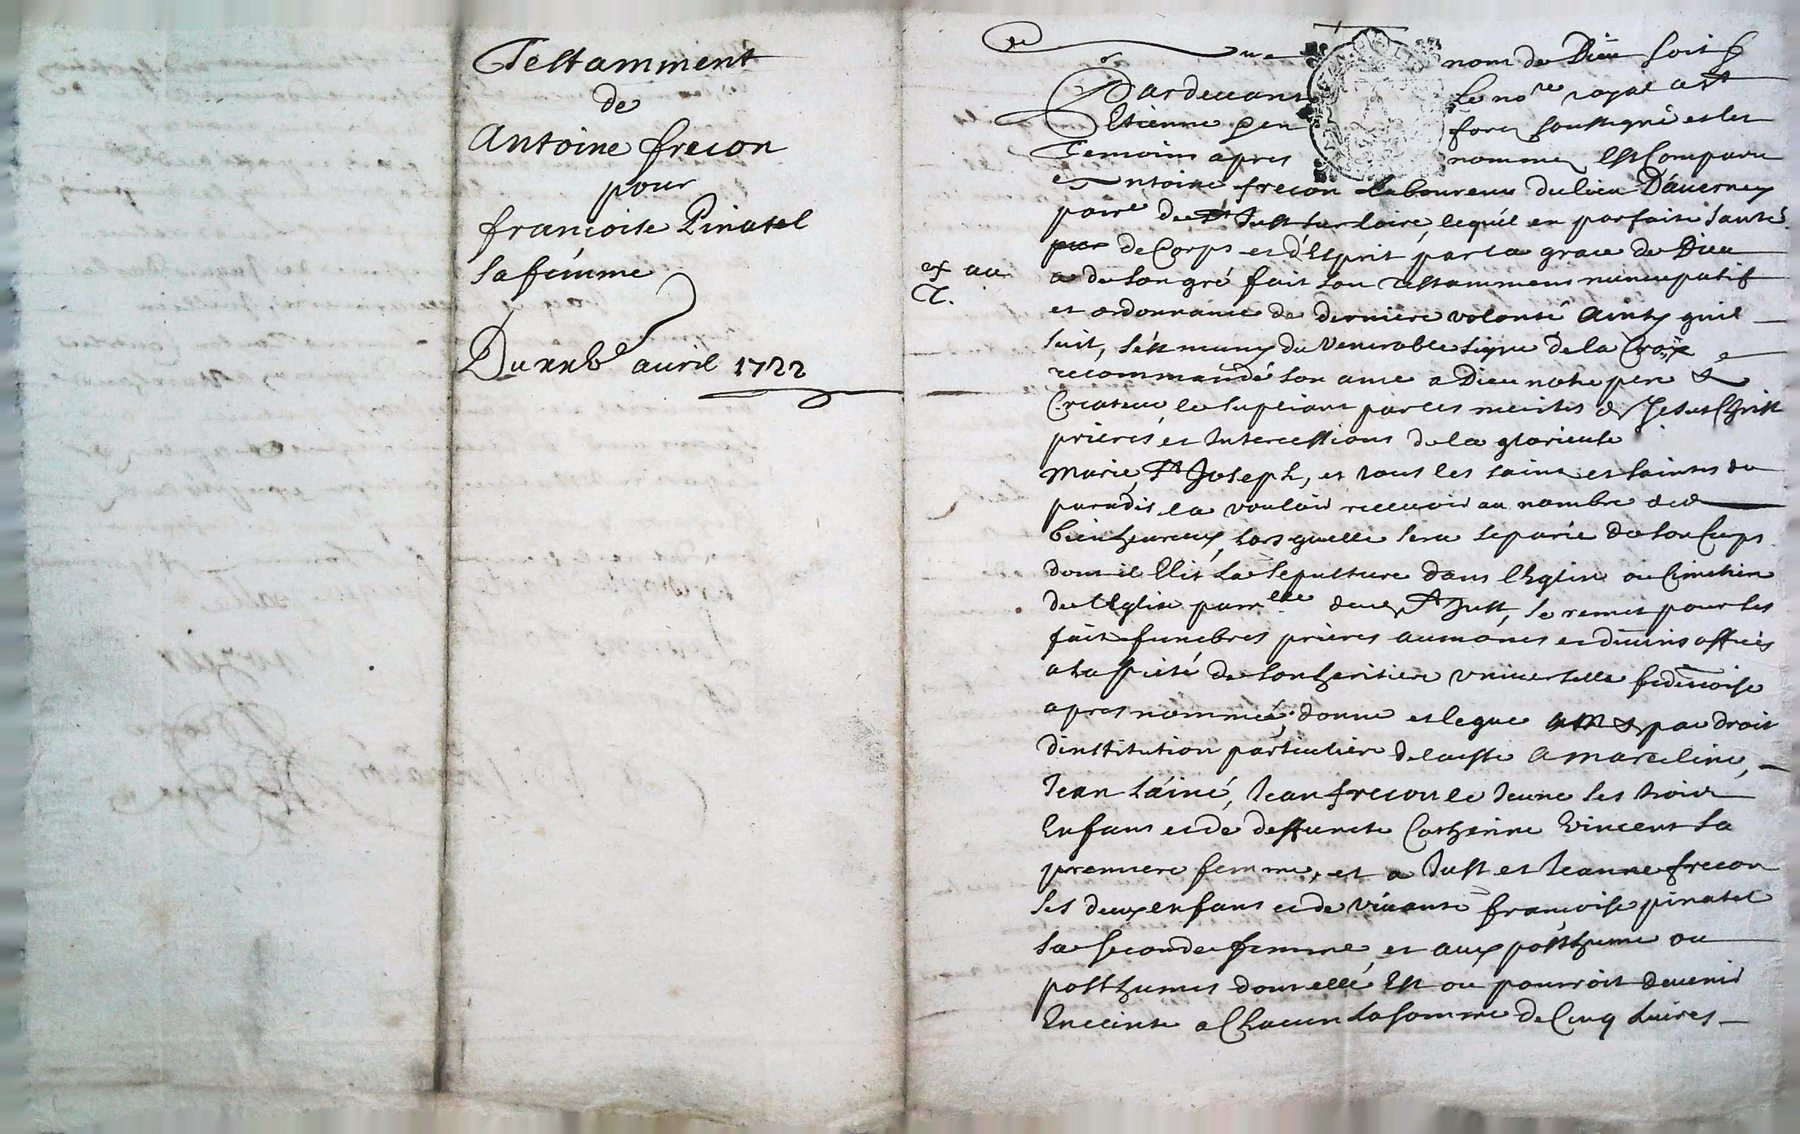 Testamment
de
Antoine frecon
pour
francoise Pinatel
sa femme
Du xxbe avril 1722
Au nom de Dieu soit
Pardevant Le nore royal a St
Etienne en forez soussigné et les
Temoins apres nommez Est Comparu
Antoine frecon Laboureur du lieu D'auernay
parre de St Just sur loire, lequél en parfaite santé
de Corps et d'Esprit par la grace de Dieu
a de son gré fait son testammens nuncupatif
et ordonnance de derniere volonté ainsy quil
suit, s'est muny du Venerable signe de la Croix e
recommandé son ame a Dieu notre pere &
Createur le supliant par les merites de Jesus Christ
prieres et Intercessions de la glorieuse
Marie, St Joseph, et tous les saints et saintes du
paradis la vouloir recevoir au nombre des
bienheureux, lors quelle sera separée de son Corps
dont il Elit sa sepulture dans l'Eglise ou Cimetiere
de l'Eglise parrelle dud St Just, se remet pour ses
fait funebres prieres aumônes et diuins offices
a la pieté de son heritiere vniuerselle
apres nommée; donne et legue & par droit
dinstitution particuliere delaisse a Marceline,
Jean L'áiné, Jean frecon le Jeune ses trois
Enfans et de deffuncte Catherine Vincent sa
premiere femme, et a Just et Jeanne frecon
ses deux enfans et de viuante francoise pinatel
sa seconde femme, et aux posthume ou
posthumes dont elle Est ou pourroit deuenir
Enceinte a Chacun la somme de Cinq Liures